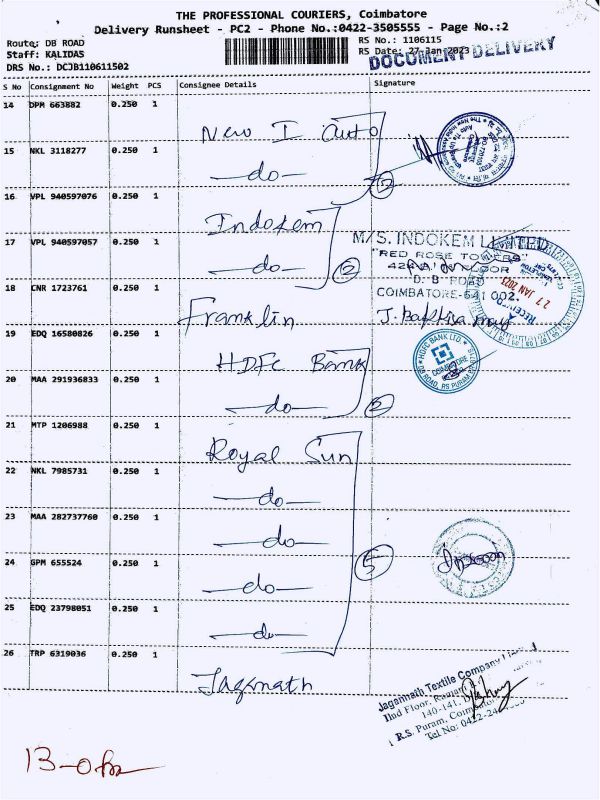 THE PROFESSIONAL COURIERS, Coimbatore
Delivery Runsheet - PC2 - Phone No.:0422-3505555 - Page No.:2
Route: DB ROAD
Staff: KALIDAS
DRS No.: DCJB110611502
RS No.: 1106115
RS Date: 27-Jan-2023
DOCUMENT DELIVERY
S No Consignment No Weight PCS Consignee Details Signature
14 DPM 663882 0.250 1 New I Auto
15 NKL 3118277 0.250 1 -do-
16 VPL 940597076 0.250 1 Indokem
17 VPL 940597057 0.250 1 -do- 2
M/S. INDOKEM LIMITED
"RED ROSE TOWERS"
D. B. ROAD
COIMBATORE-641 002.
27 JAN 2023
18 CNR 1723761 0.250 1 Franklin
19 EDQ 16580826 0.250 1 HDFC Bank
HDFC BANK LTD.
COIMBATORE
DB ROAD, RS PURAM
20 MAA 291936833 0.250 1 -do- 2
21 MTP 1206988 0.250 1 Royal Sun
22 NKL 7985731 0.250 1 -do-
23 MAA 282737760 0.250 1 -do-
24 GPM 655524 0.250 1 -do- 5
25 EDQ 23798051 0.250 1 -do-
26 TRP 6319036 0.250 1 Jagannath
Jagannath Textile Company
IInd Floor,
140-141,
R.S. Puram,
Tel No: 0422-24